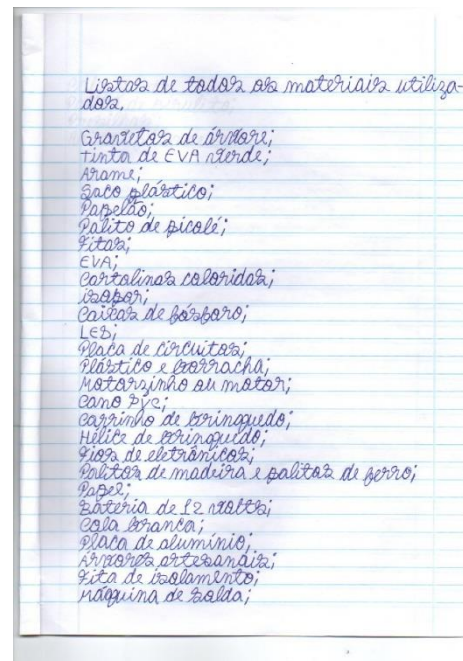 Listas de todos os materiais utiliza-
dos.
Gravetos de árvore;
Tinta de EVA verde;
Arame;
Saco plástico;
Papelão;
Palito de picolé;
Fitas;
EVA;
Cartolinas coloridas;
isopor;
Caixas de fósforo;
LED;
Placa de circuitos;
Plástico e borracha;
Motorzinho ou motor;
Cano PVC;
Carrinho de brinquedo;
Hélice de brinquedo;
Fios de eletrônicos;
Palitos de madeira e palitos de ferro;
Papel;
Bateria de 12 volts;
Cola branca;
Placa de alumínio;
Árvores artesanais;
Fita de isolamento;
Máquina de solda;